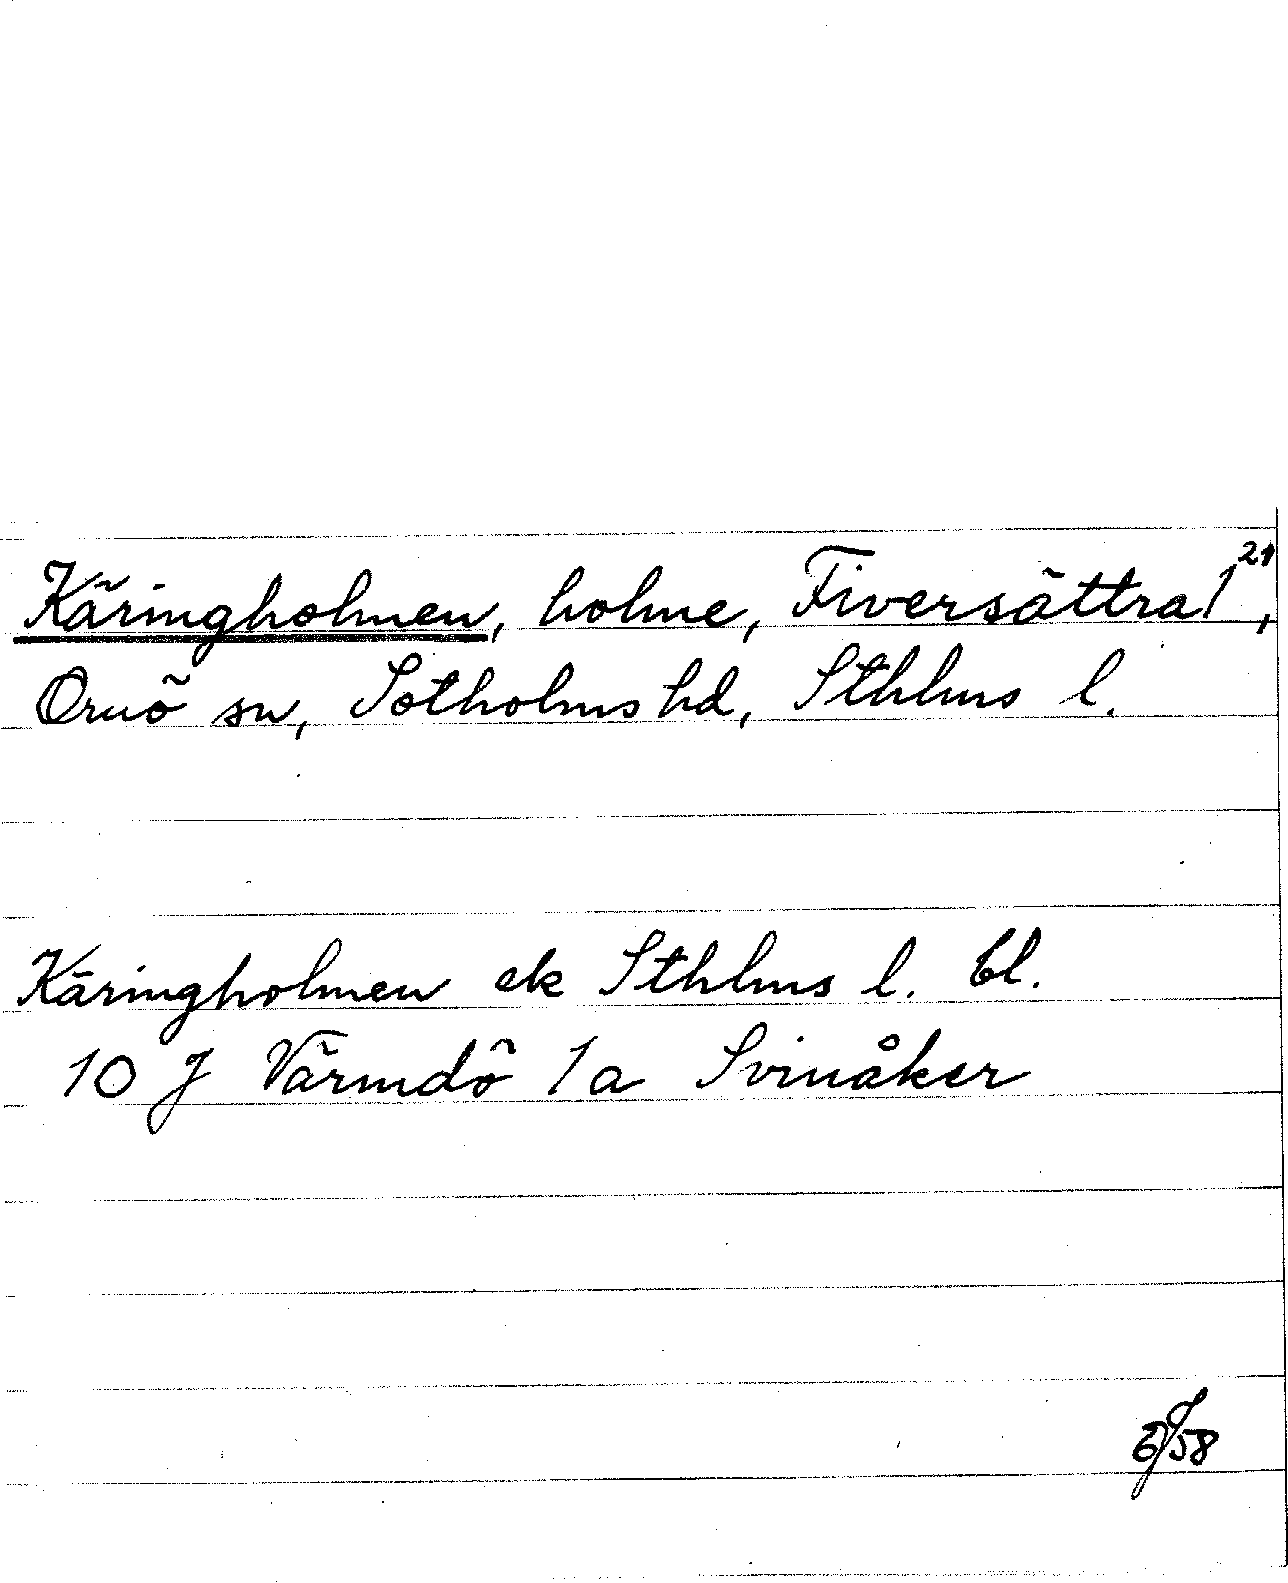 Käringholmen, holme, Fiversättra 1²¹,
Ornö sn, Sotholms hd, Sthlms l.
Käringholmen ek Sthlms l. bl.
10 J Värmdö 1a Svinåker